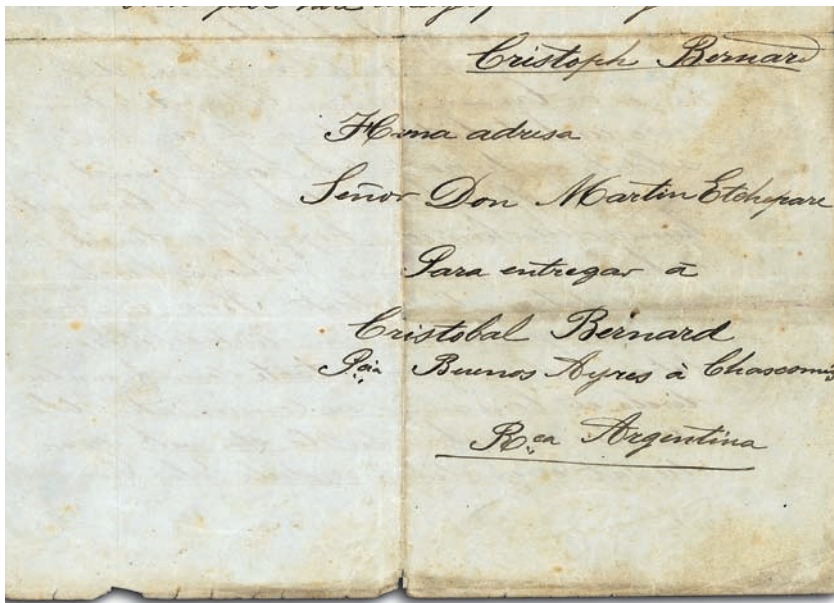 Cristoph Bernard
Hona adresa
Señor Don Martin Etchepare
Para entregar à
Cristobal Bernard
Pcia Buenos Ayres à Chascomus
Rca Argentina